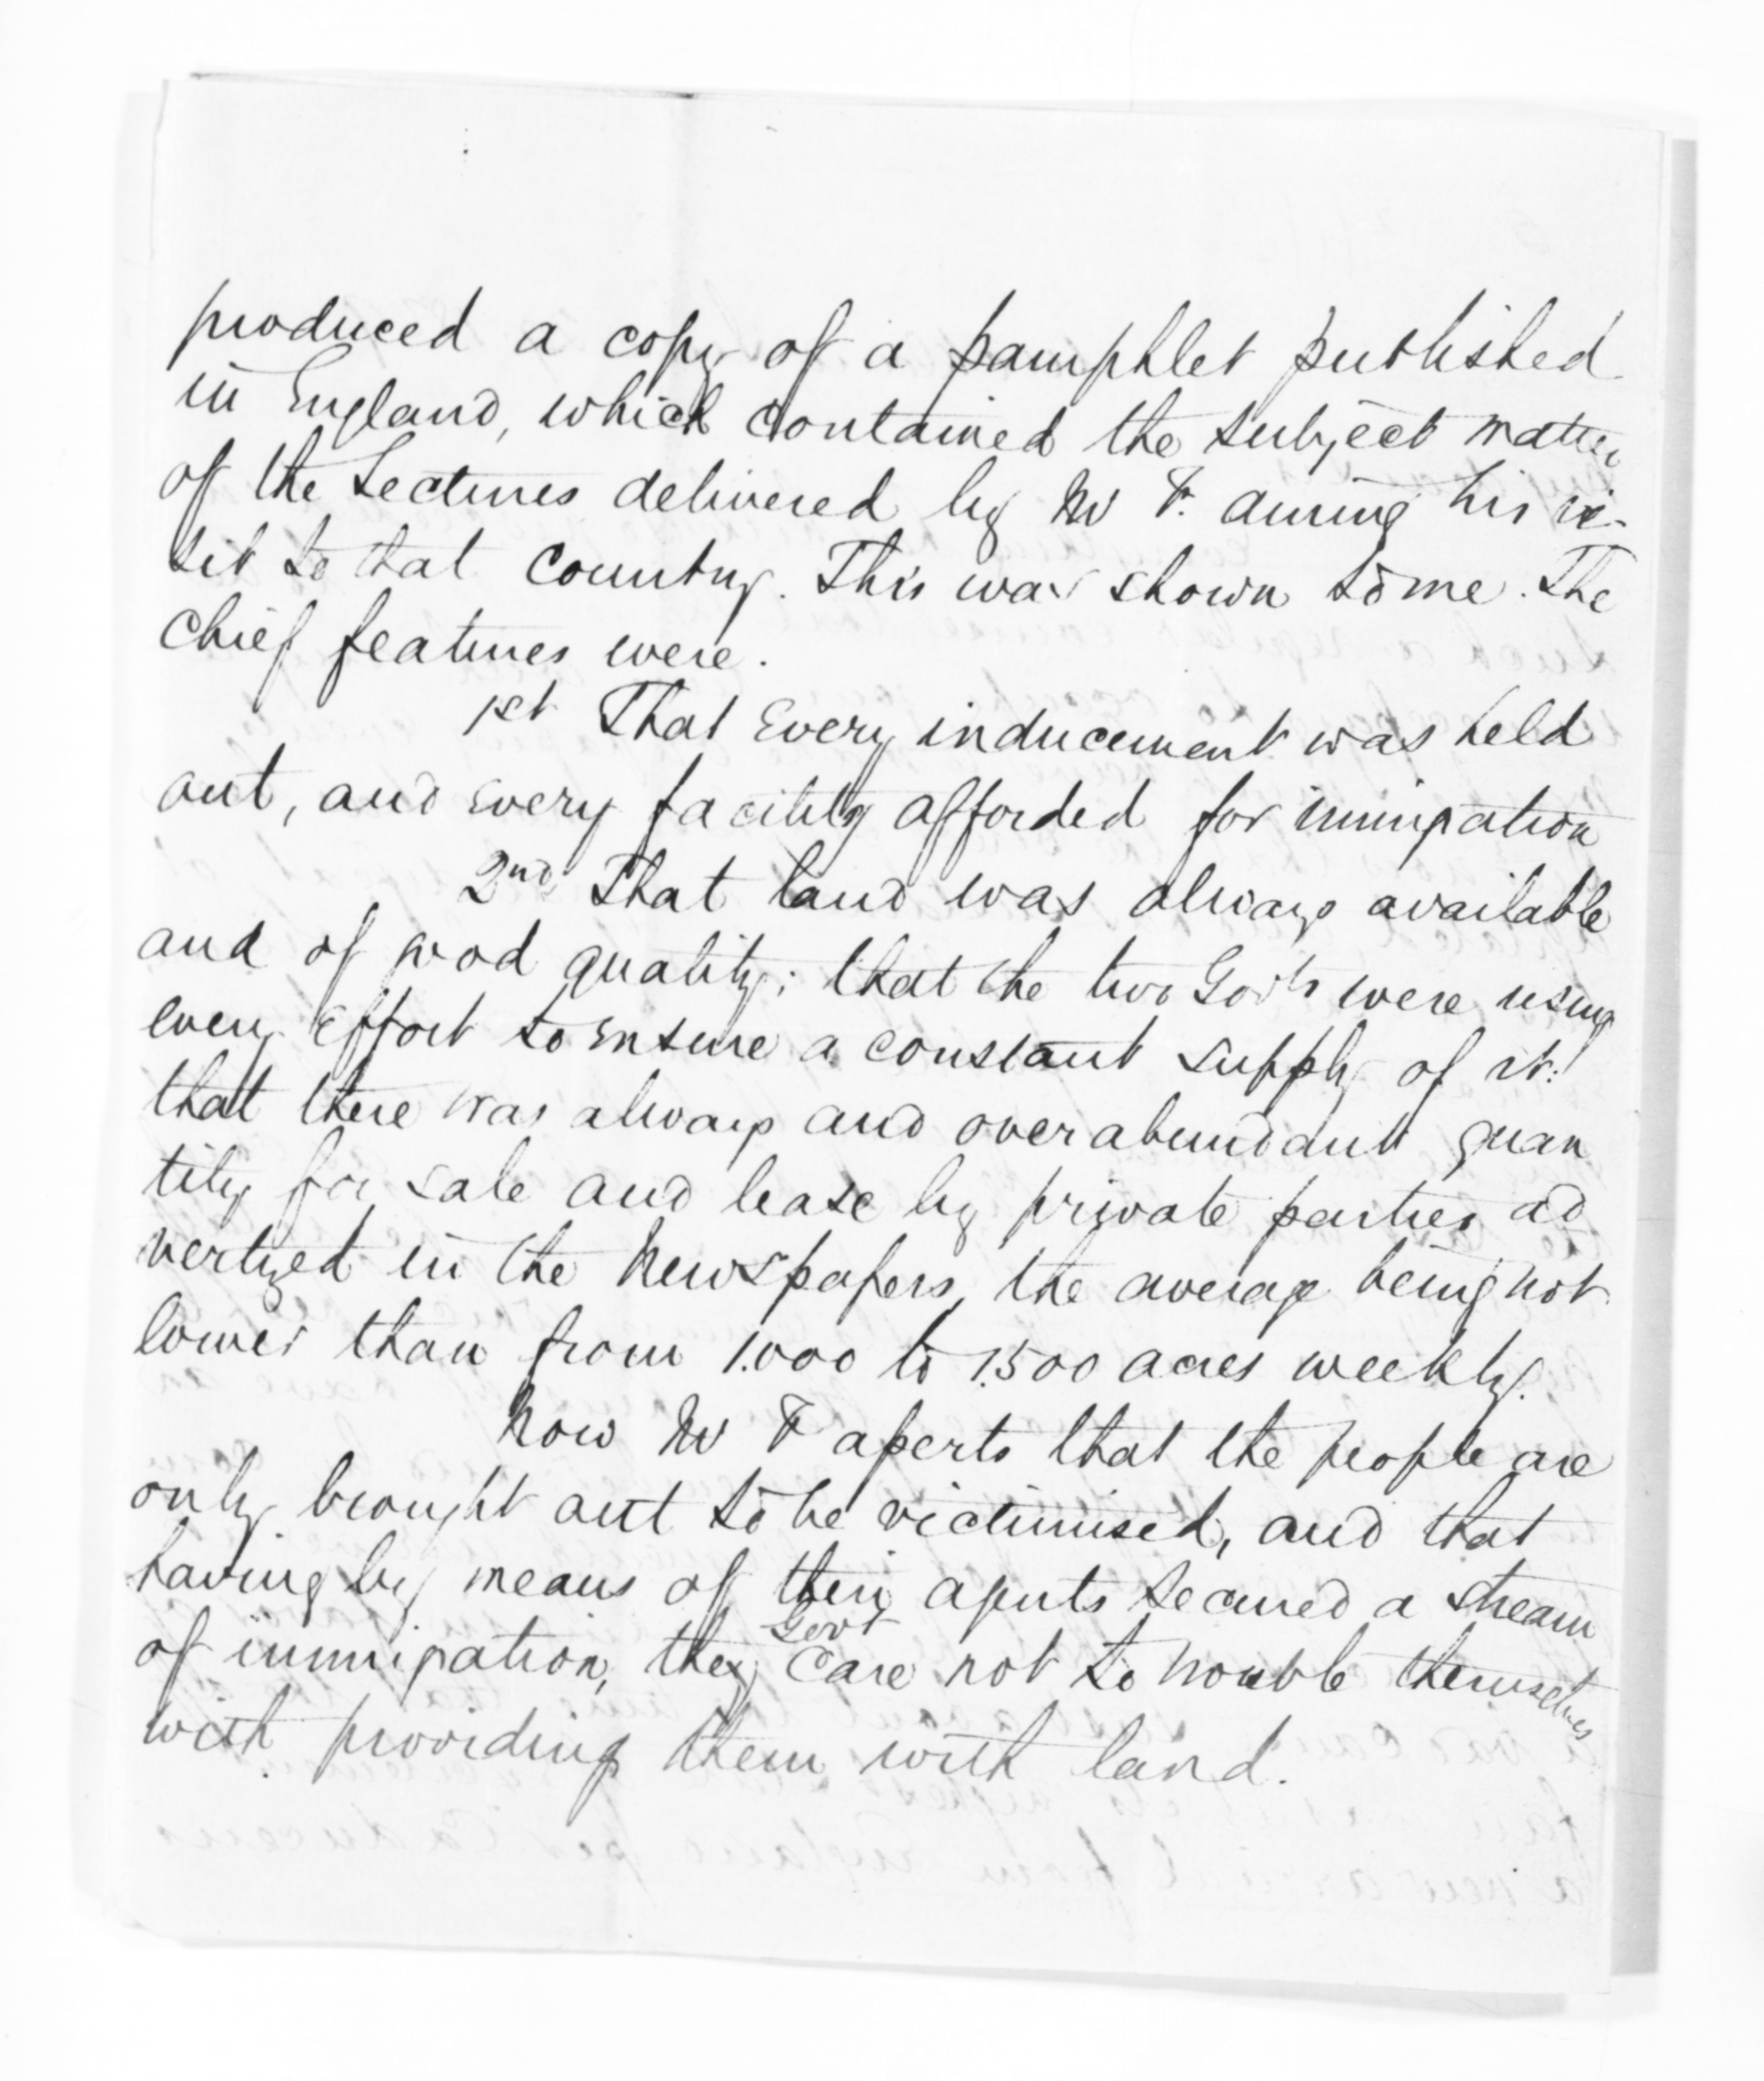 produced a copy of a pamphlet published
in England, which contained the subject matter
of the Lectures delivered by Mr F. during his vi-
sit to that Country. This was shown to me. The
Chief features were.
1st That Every inducement was held
out, and Every facility afforded for immigration
2nd That land was always available
and of good quality; that the two Govts were using
every Effort to Ensure a constant supply of it:
that there was always and over abundant quan
tity for sale and lease by private parties ad
vertized in the Newspapers, the average being not
lower than from 1.000 to 1.500 acres weekly.
Now Mr F asserts that the people are
only brought out to be victimised, and that
having by means of their agents secured a stream
Govt
of immigration, they care not to trouble themselves
with providing them with land.